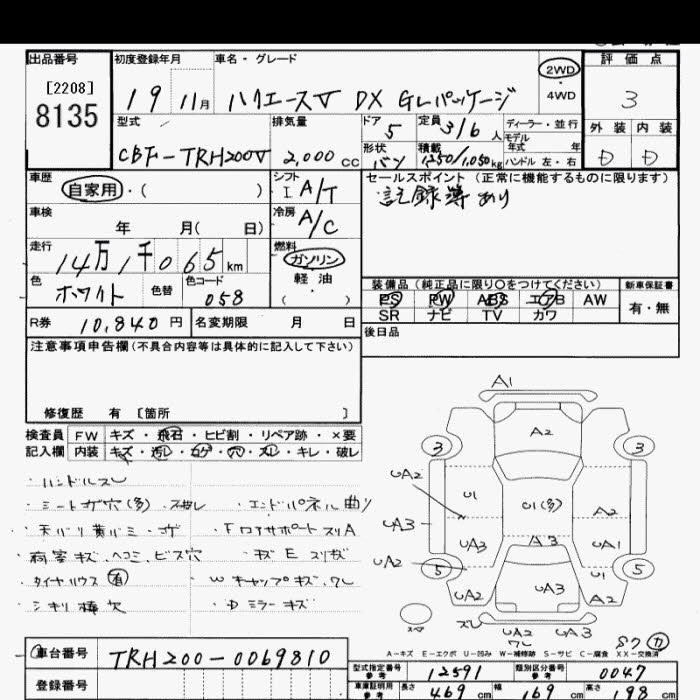 出品番号
[2208]
8135
初度登録年月
19 11月
車名・グレード
ハイエースV DX GLパッケージ
2WD
・
4WD
評価点
3
外装 内装
D D
型式
CBF-TRH200V
排気量
2,000 cc
ドア
5
定員
3/6 人
形状
バン
積載
1250/1,050 kg
ディーラー・並行
モデル
年式 年
ハンドル 左・右
車歴
自家用・( )
車検
年 月( 日)
走行
14万1千065 km
色
ホワイト
色替
色コード
058
シフト
I A/T
冷房
A/C
燃料
ガソリン
軽油
( )
セールスポイント (正常に機能するものに限ります)
記録簿あり
装備品 (純正品に限り〇をつけてください)
PS PW ABS エアB AW
SR ナビ TV カワ
新車保証書
有・無
R券 10,840 円
名変期限 月 日
後日品
注意事項申告欄 (不具合内容等は具体的に記入して下さい)
修復歴 有 [箇所 ]
検査員
記入欄
FW キズ・飛石・ヒビ割・リペア跡・×要
内装 キズ・汚レ・コゲ・穴・スレ・キレ・破レ
・ハンドルスレ
・シートコゲ穴(多)
・エンドパネル曲り
・タイヤハウス 有
・Wキャップキズ・ワレ
・Dミラーキズ
A1
A2
3 3
UA2
U1
U1(多)
A2
UA3
UA3
A3
UA1
UA2
5 5
U1
UA2
UA3
A2
スレ
UA2
ワレ
UA3
A-キズ E-エクボ U-凹み W-補修跡 S-サビ C-腐食 XX-交換済
車台番号
TRH200-0069810
登録番号
型式指定番号
参考
12591
類別区分番号
参考
0047
車庫証明用
参考
長さ 469 cm
幅 169 cm
高さ 198 cm